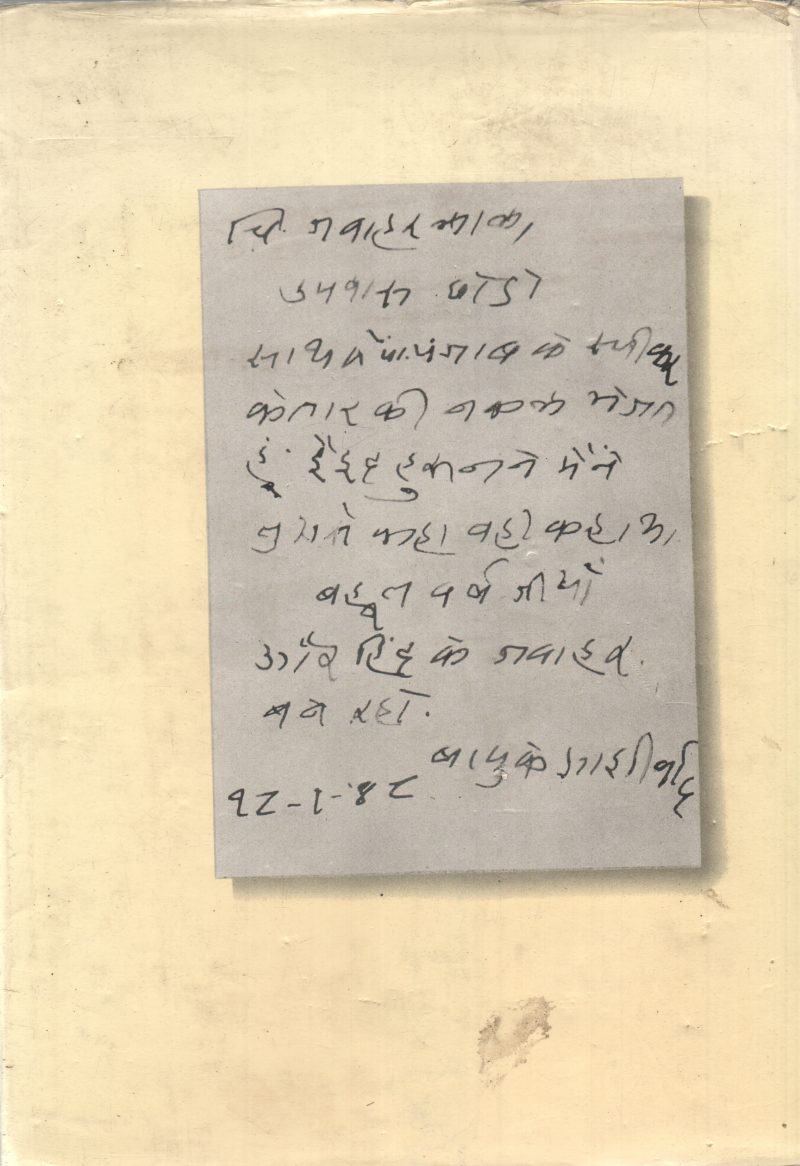 चि. जवाहरलाल,
उपवास छोडो
साथमें प. पंजाब के स्पीकर
के तार की नकल भेजता
हूं. जैहद हुसनने मैंने
तुमसे कहा वही कहा था.
बहूत वर्ष जीयो
और हिंद के जवाहर
बने रहो.
बापुके आशीर्वाद
१८-१-४८